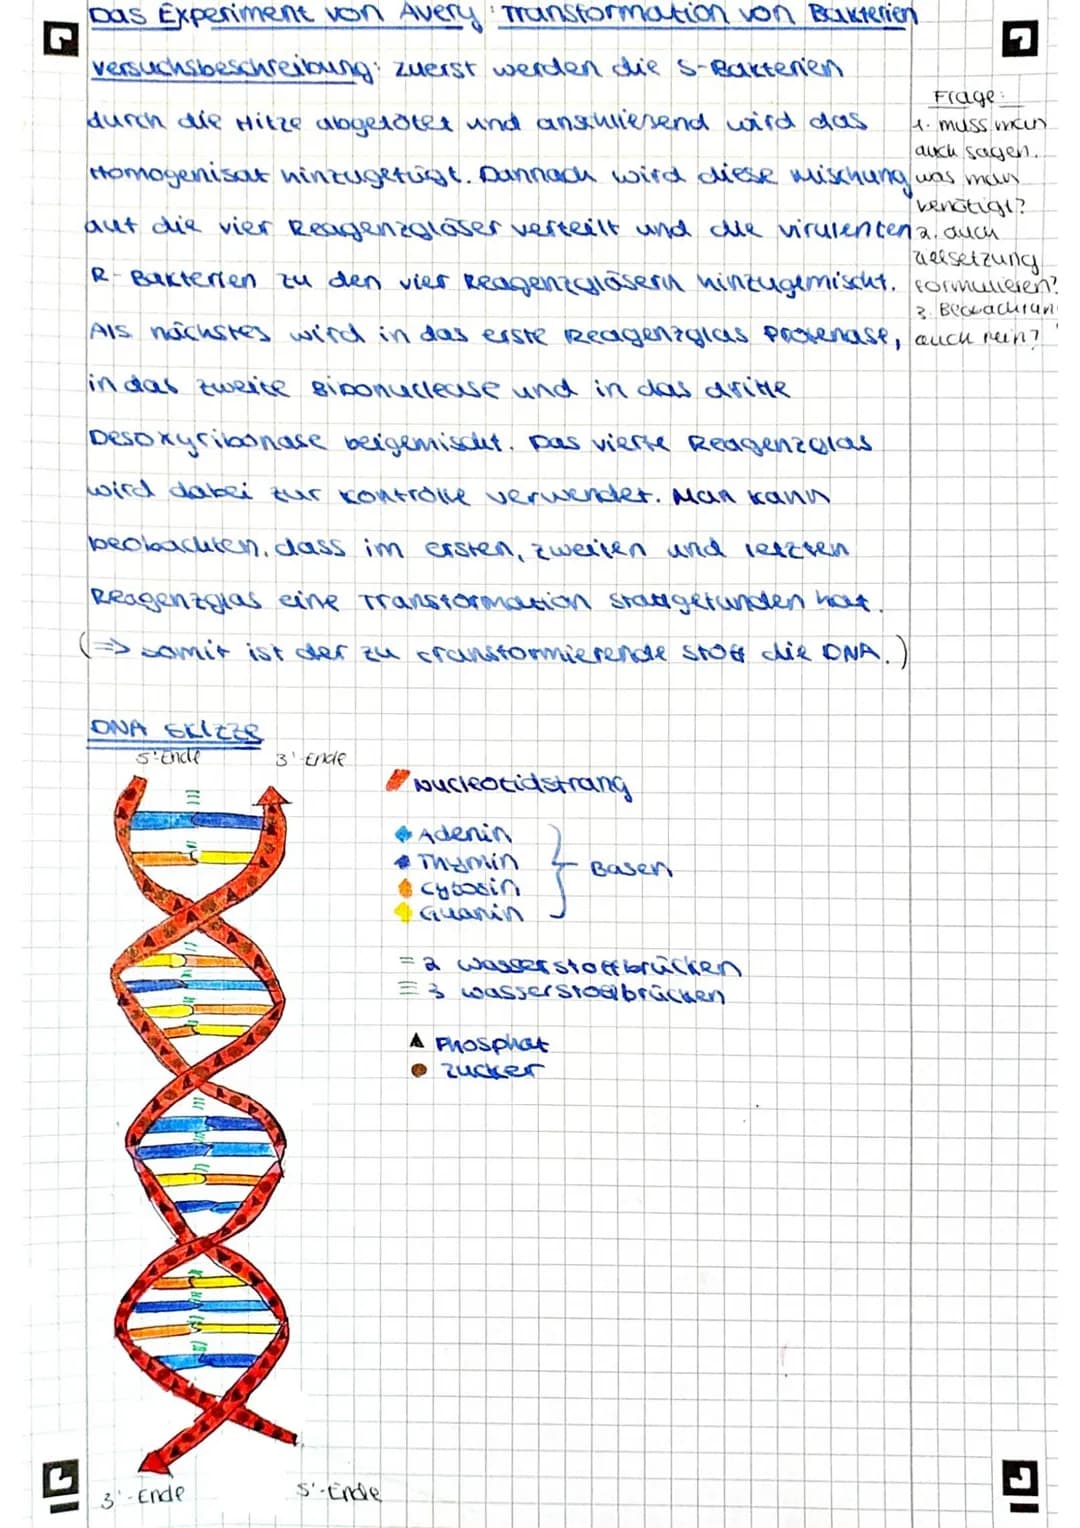 Das Experiment von Avery: Transformation von Bakterien
Versuchsbeschreibung: zuerst werden die S-Bakterien
durch die Hitze abgetötet und anschliesend wird das
Homogenisat hinzugefügt. Dannach wird diese Mischung
auf die vier Reagenzgläser verteilt und die virulenten
R-Bakterien zu den vier Reagenzgläsern hinzugemischt.
Als nächstes wird in das erste Reagenzglas Protenase,
in das zweite Ribonuclease und in das dritte
Desoxyribonase beigemischt. Das vierte Reagenzglas
wird dabei zur Kontrolle verwendet. Man kann
beobachten, dass im ersten, zweiten und letzten
Reagenzglas eine Transformation stattgefunden hat.
(=> somit ist der zu transformierende Stoff die DNA.)
Frage:
1. muss man
auch sagen,
was man
benötigt?
2. auch
Zielsetzung
formulieren?
3. Beobachtun
auch rein?
DNA SKIZZE
5'-Ende 3'-Ende
Nucleotidstrang
Adenin
Thymin
Cytosin
Guanin
Basen
= 2 Wasserstoffbrücken
≡ 3 Wasserstoffbrücken
Phosphat
Zucker
3'-Ende 5'-Ende